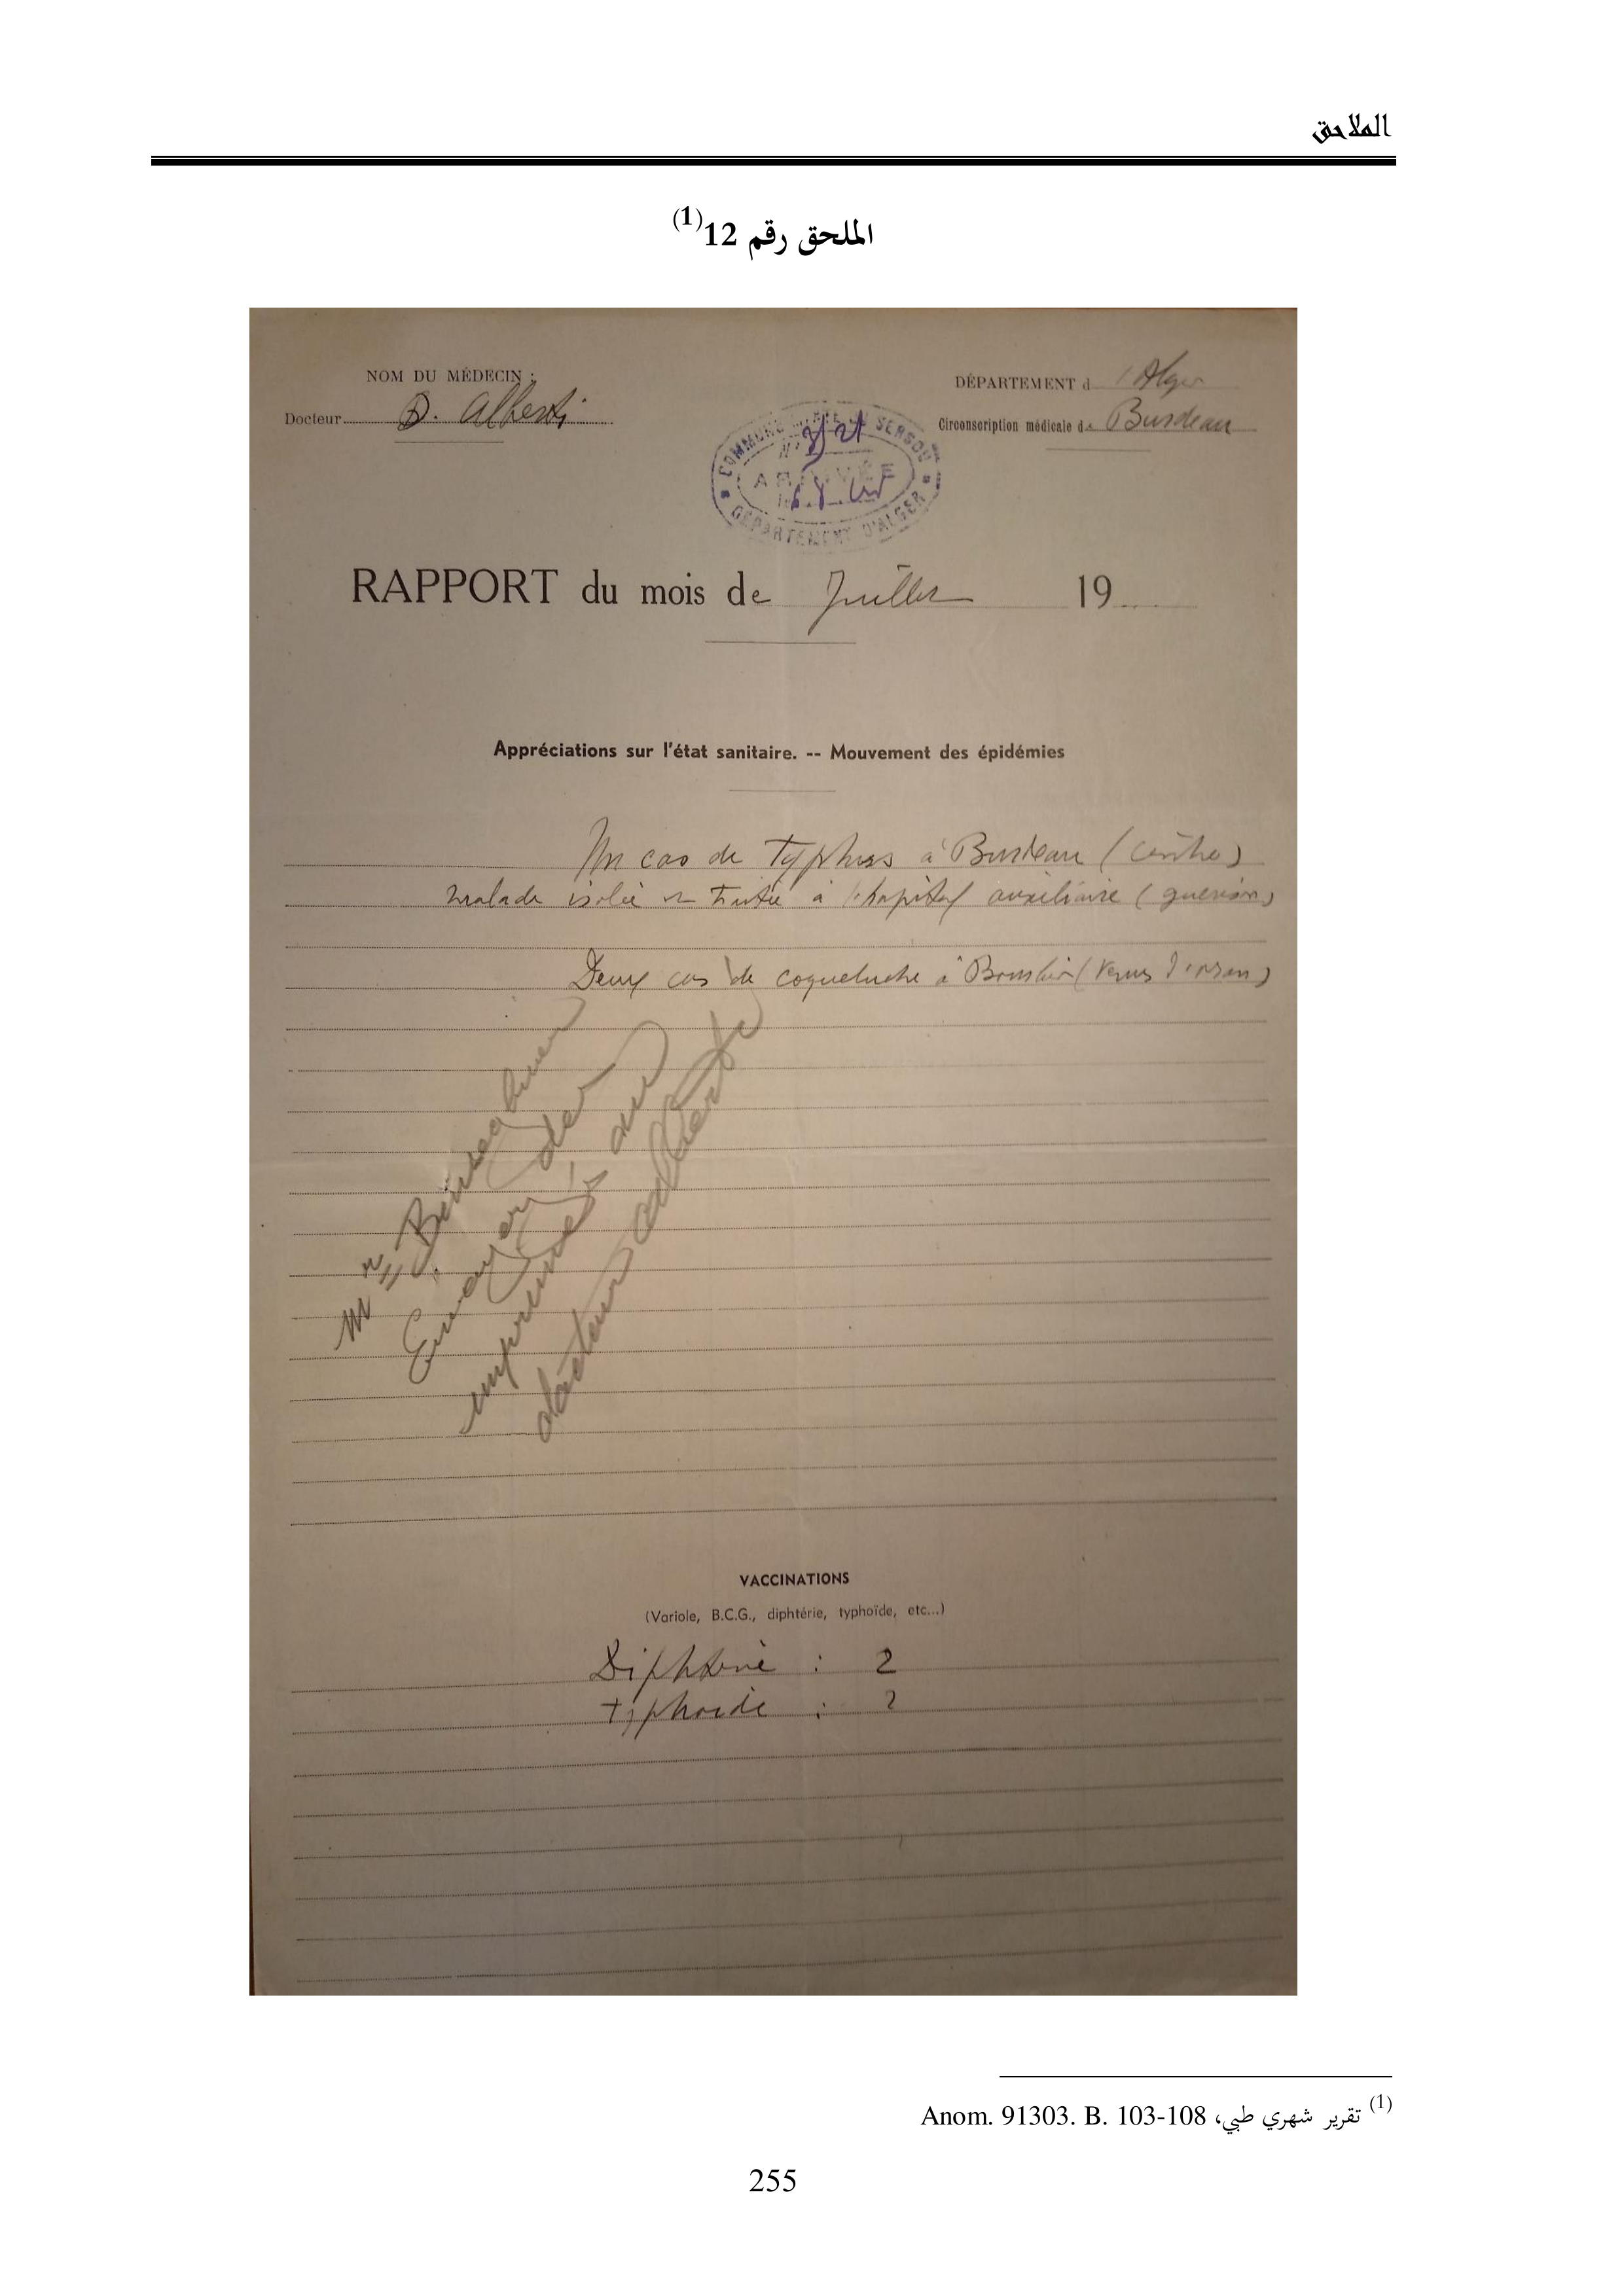 الملاحق
الملحق رقم 12(1)
NOM DU MÉDECIN :
Docteur D. Alberti
DÉPARTEMENT d'Alger
Circonscription médicale de Burdeau
COMMUNE MIXTE DU SERSOU
N°
ARRIVÉE
DÉPARTEMENT D'ALGER
RAPPORT du mois de Juillet 19
Appréciations sur l'état sanitaire. -- Mouvement des épidémies
Un cas de typhus à Burdeau (centre)
malade isolée et traitée à l'hôpital auxiliaire (guérison)
Deux cas de coqueluche à (venus d'oran)
Mr
Envoyer des
imprimés au
docteur Alberti
VACCINATIONS
(Variole, B.C.G., diphtérie, typhoïde, etc...)
Diphtérie : 2
typhoide : 2
(1) تقرير شهري طبي، Anom. 91303. B. 103-108
255